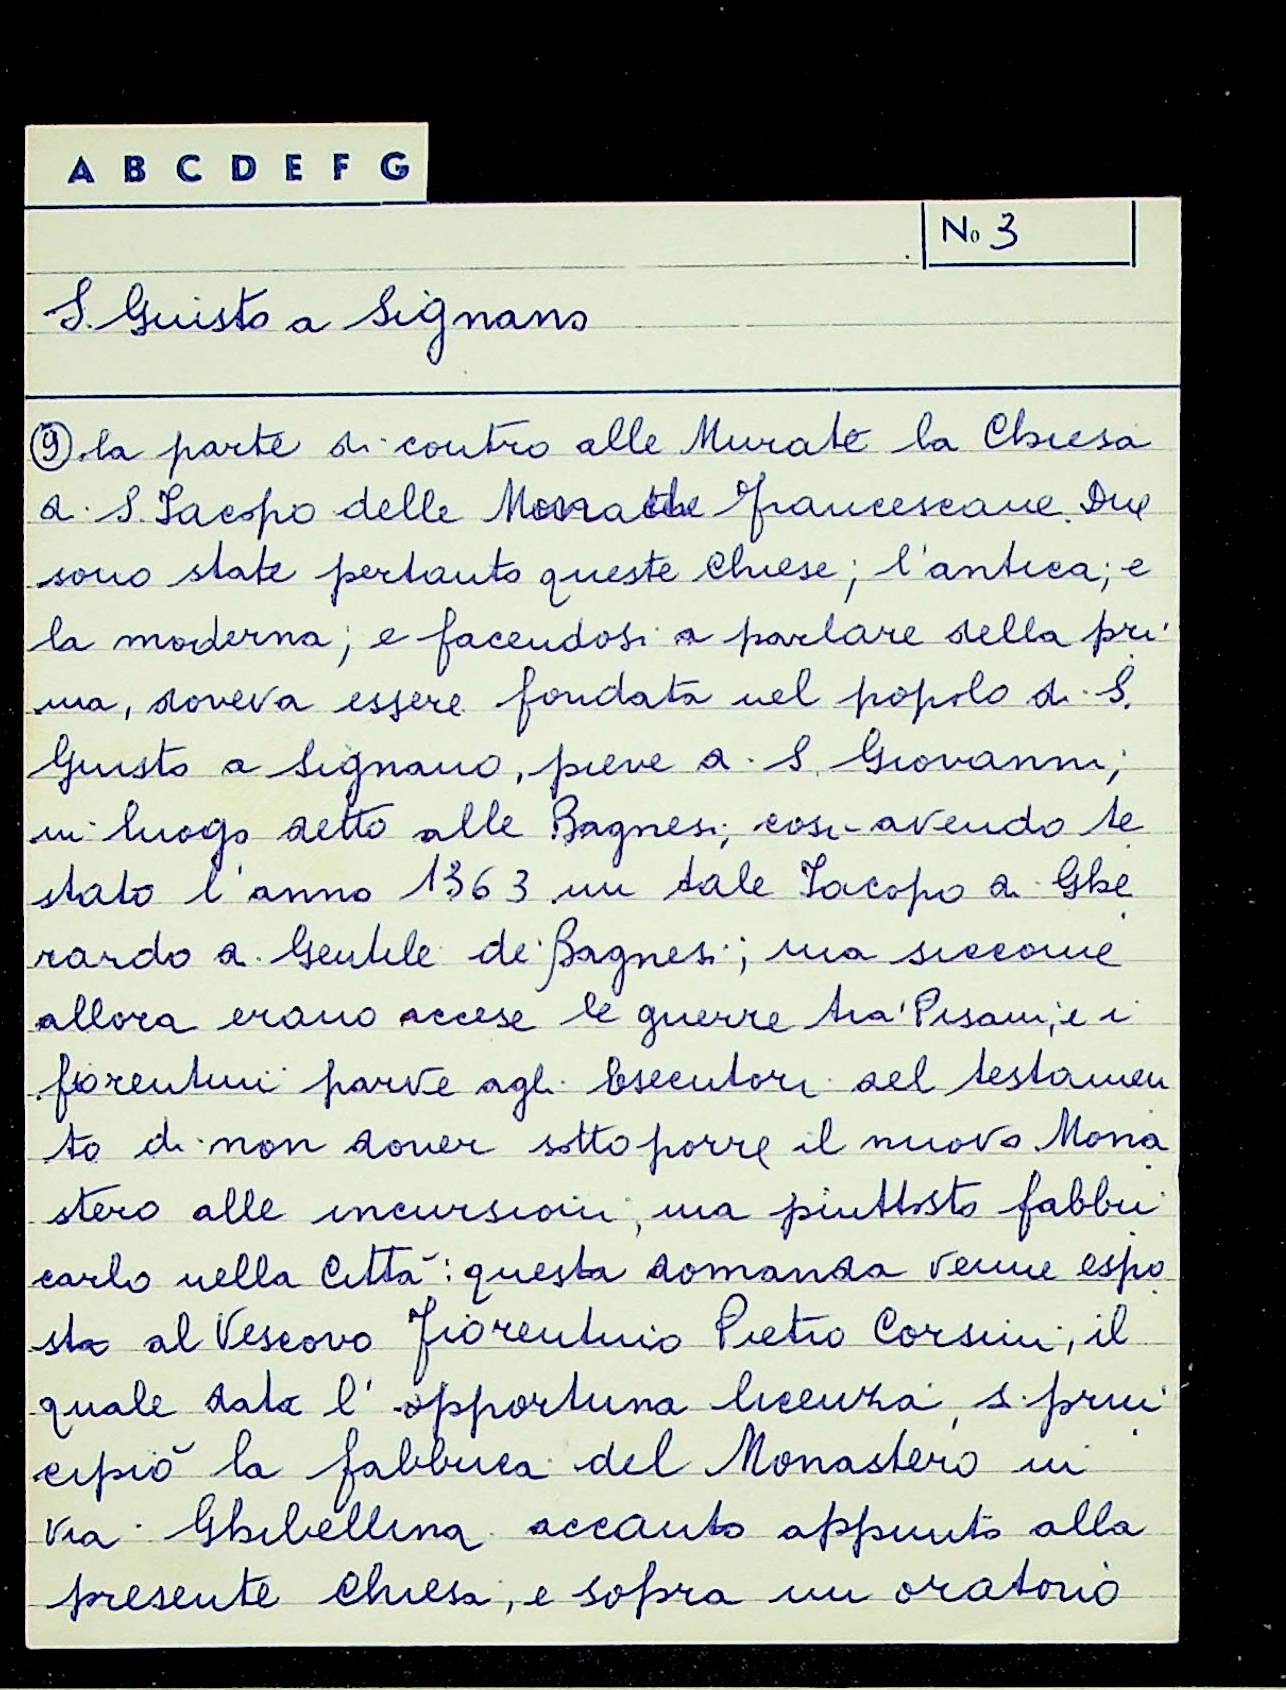 A B C D E F G
No 3
S. Giusto a Signano
⑨ la parte di contro alle Murate la Chiesa
di S. Jacopo delle Monache Francescane. Due
sono state pertanto queste Chiese; l'antica; e
la moderna; e facendosi a parlare della pri
ma, doveva essere fondata nel popolo di S.
Giusto a Signano, pieve di S. Giovanni;
in luogo detto alle Bagnesi; così avendo te
stato l'anno 1363 un tale Jacopo di Ghe
rardo di Gentile de' Bagnesi; ma siccome
allora erano accese le guerre tra' Pisani, e i
fiorentini parve agli Esecutori del testamen
to di non dover sottoporre il nuovo Mona
stero alle incursioni, ma piuttosto fabbri
carlo nella Città: questa domanda venne espo
sta al Vescovo Fiorentino Pietro Corsini, il
quale data l'opportuna licenza, si prin
cipiò la fabbrica del Monastero in
Via Ghibellina accanto appunto alla
presente Chiesa, e sopra un oratorio